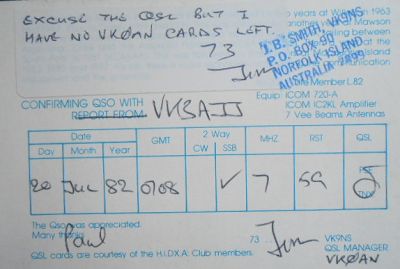 EXCUSE THE QSL BUT I
HAVE NO VKØAN CARDS LEFT.
73
Jim
J.B. SMITH, VK9NS
P.O. BOX 90
NORFOLK ISLAND
AUSTRALIA 2899
years at Wil 1963
another Mawson
ling between
the
munication
Life Member L.82
Equip: ICOM 720-A
ICOM IC2KL Amplifier
7 Vee Beams Antennas
CONFIRMING QSO WITH
REPORT FROM VK3AJJ
Date GMT 2 Way MHZ RST QSL
Day Month Year CW SSB
20 JUL 82 0708 ✓ 7 59 PSE
TNX
The Qso was appreciated.
Many thanks Paul
73 ... Jim VK9NS
QSL MANAGER
VKØAN
QSL cards are courtesy of the H.I.DX.A. Club members.